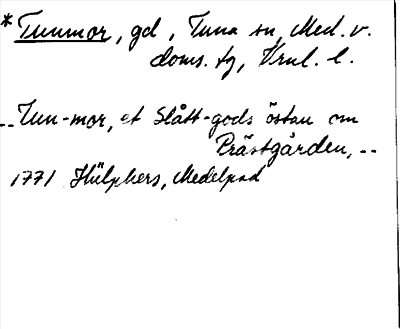 *Tunmor, gd, Tuna sn, Med. v.
doms. tg, Vrnl. l.
-- Tun-mor, et Slått-gods östan om
Prästgården, --
1771 Hülphers, Medelpad